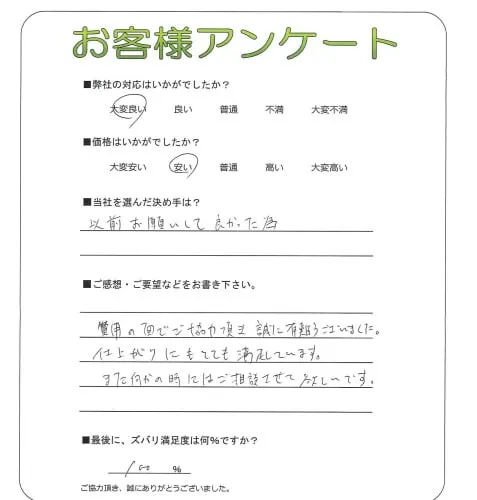 お客様アンケート
■弊社の対応はいかがでしたか？
大変良い 良い 普通 不満 大変不満
■価格はいかがでしたか？
大変安い 安い 普通 高い 大変高い
■当社を選んだ決め手は？
以前お願いして良かった為
■ご感想・ご要望などをお書き下さい。
費用の面でご協力頂き誠に有難うございました。
仕上がりにもとても満足しています。
また何かの時にはご相談させて欲しいです。
■最後に、ズバリ満足度は何%ですか？
100 %
ご協力頂き、誠にありがとうございました。